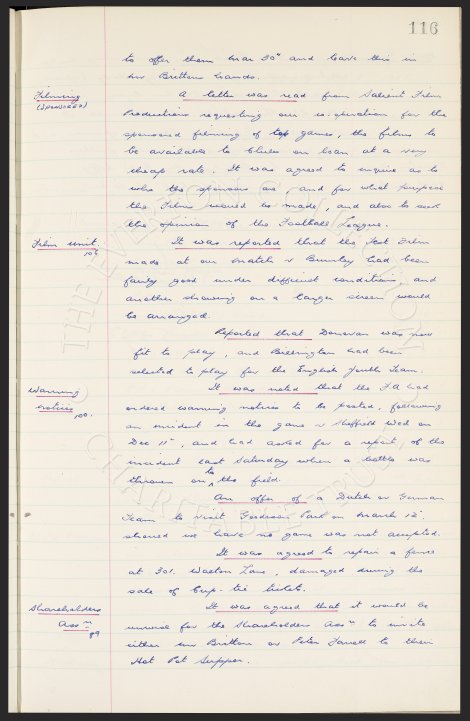 116
to offer them Mar 30th and leave this in
Mr Britton hands.
Filming
(Sponsored)
A letter was read from Salient Film
Productions requesting our co-operation for the
sponsored filming of top games, the films to
be available to Clubs on loan at a very
cheap rate. It was agreed to inquire as to
who the sponsors are, and for what purpose
the Films would be made, and also to seek
the opinion of the Football League.
Film Unit.
It was reported that the Test Film
made at our match v Burnley had been
fairly good under difficult conditions and
another showing on a larger screen would
be arranged.
Reported that Donovan was now
fit to play, and Billington had been
selected to play for the English Youth Team.
Warning
notices
100.
It was noted that the F.A had
ordered warning notices to be posted, following
an incident in the game v Sheffield Wed on
Dec 11th, and had asked for a report of the
incident last Saturday when a bottle was
thrown on to the field.
An offer of a Dutch or German
Team to visit Goodison Park on March 12th
should we have no game was not accepted.
It was agreed to repair a fence
at 301. Walton Lane, damaged during the
sale of Cup-tie tickets.
Shareholders
Assn
89
It was agreed that it would be
unwise for the Shareholders Assn to invite
either Mr Britton or Peter Farrell to their
Hot Pot Supper.
THE EVERTON COLLECTION
CHARITABLE TRUST